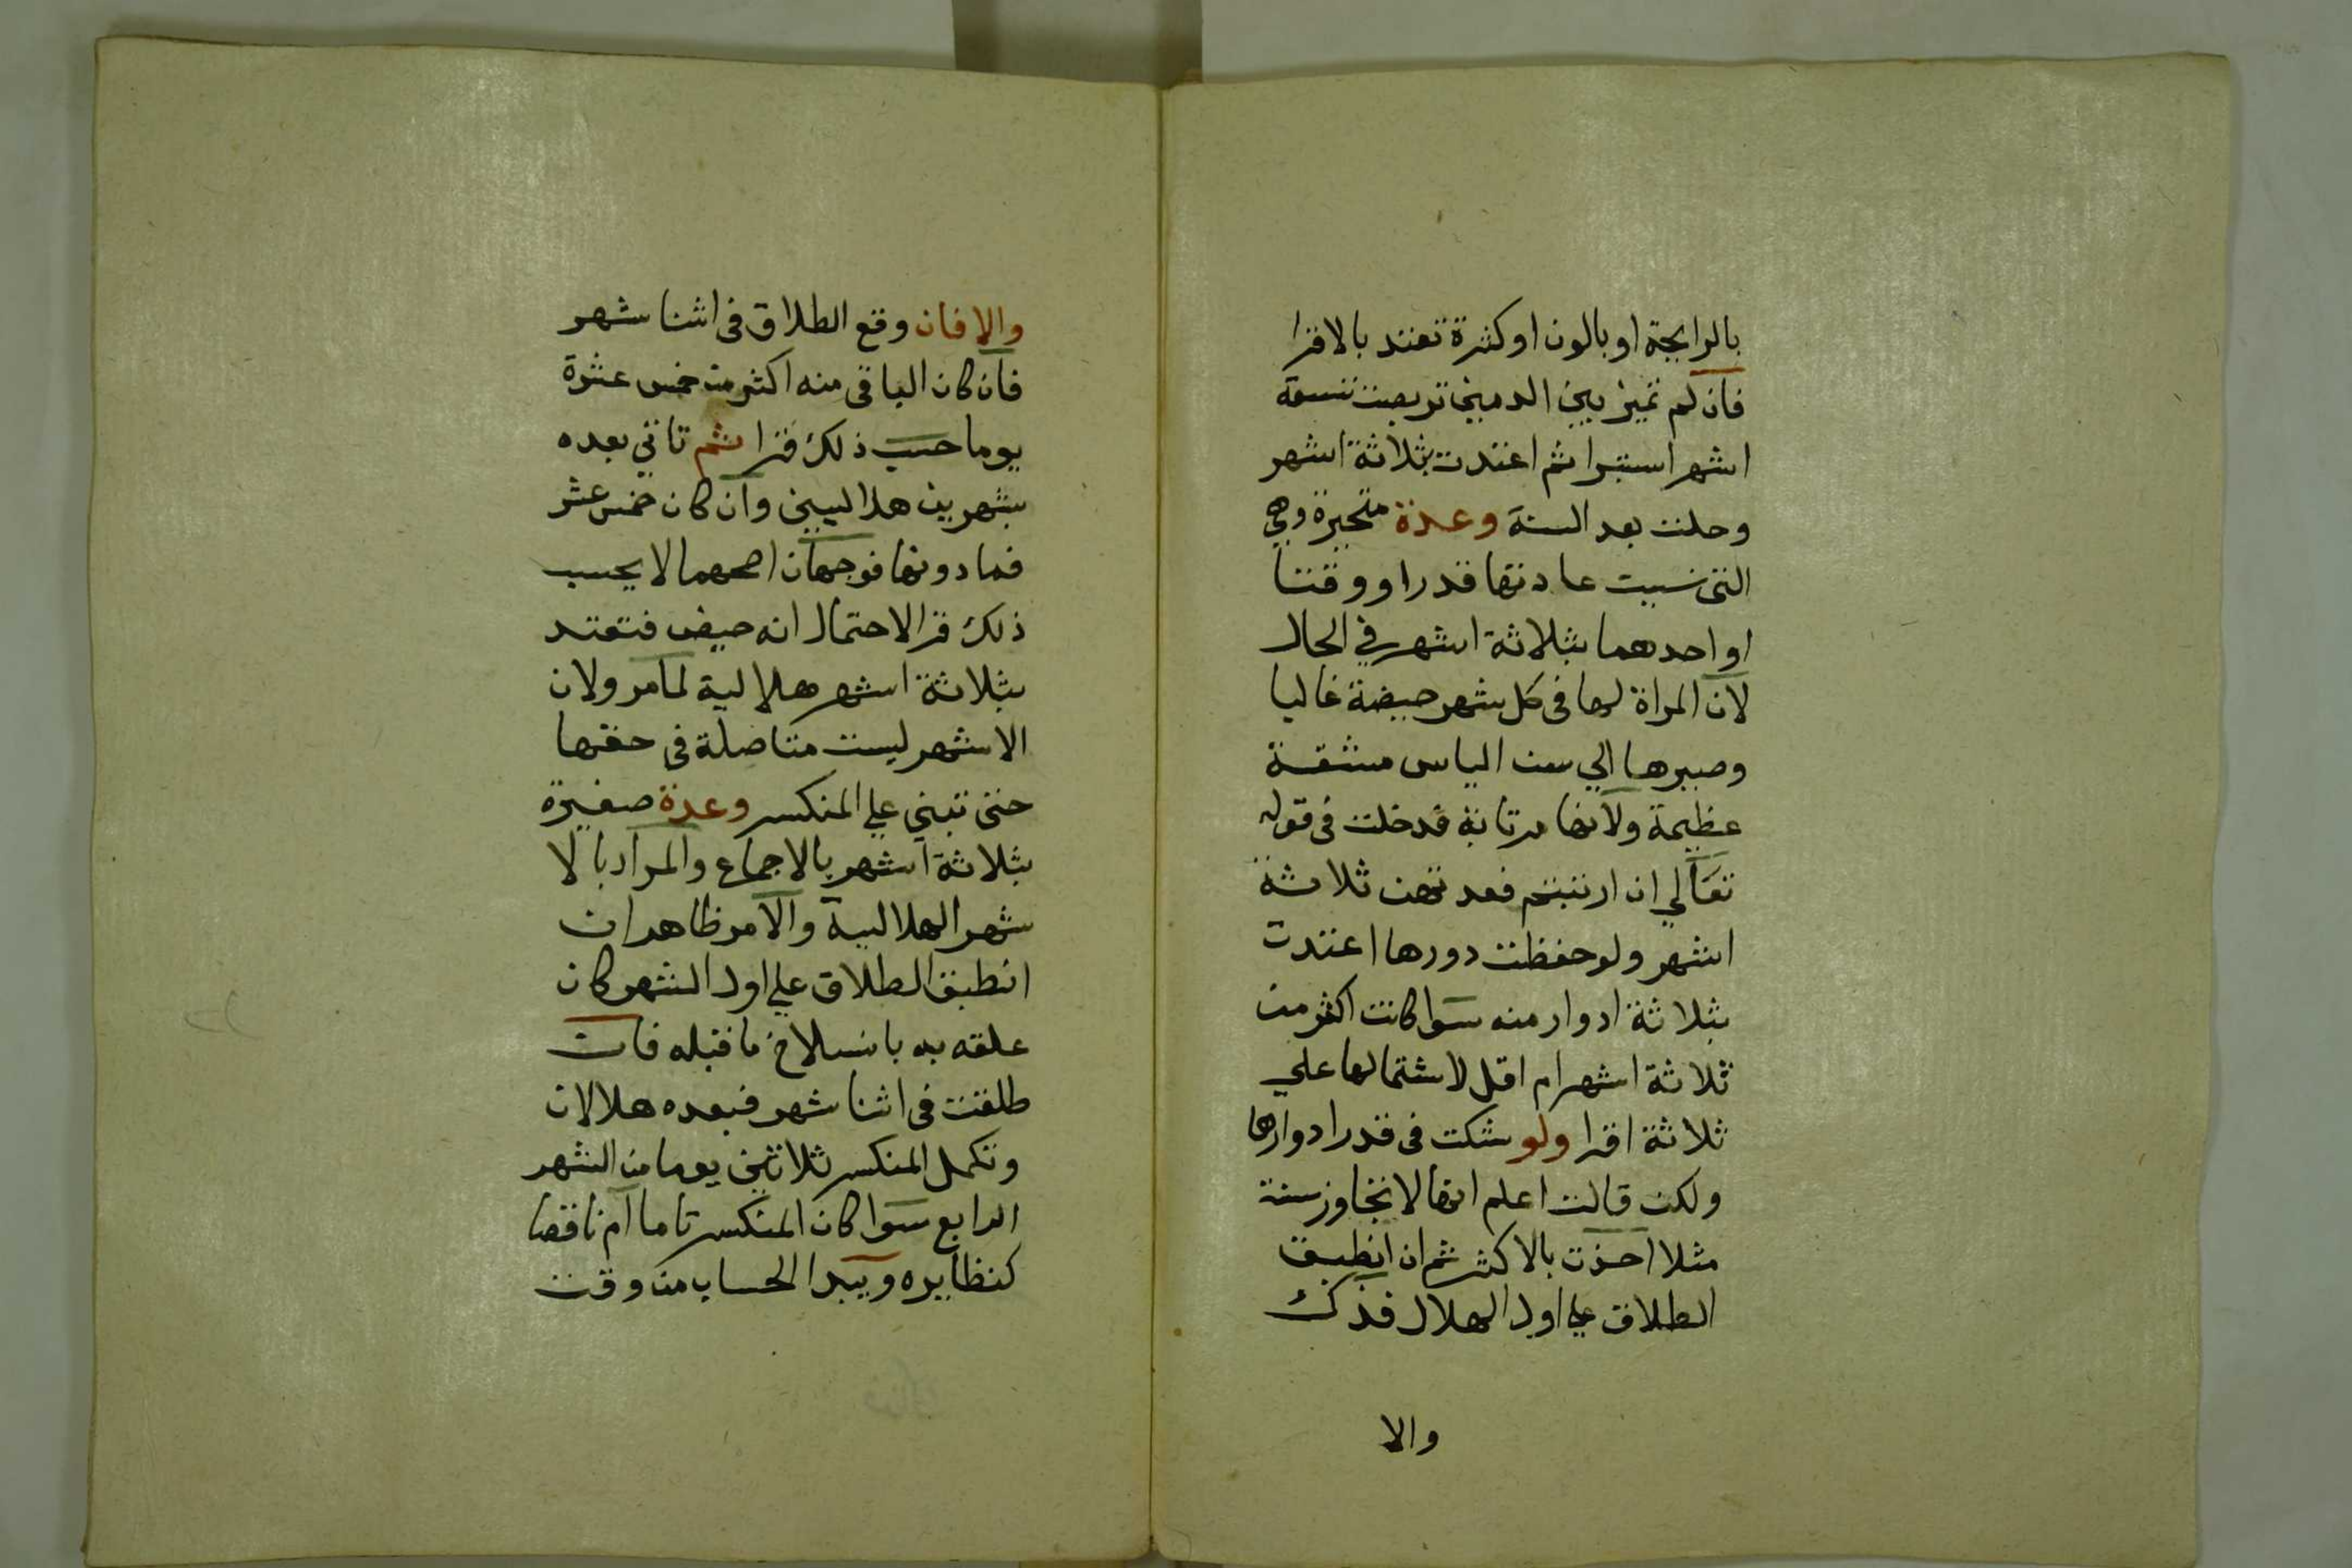 بالرايحة او بالون او كثرة تعتد بالاقرا
فان لم تميز بين الدمين تربصت تسعة
اشهر استبرا ثم اعتدت بثلاثة اشهر
وحلت بعد السنة وعدة متحيرة وهي
التى نسيت عادتها قدرا ووقتا
او احدهما بثلاثة اشهر في الحال
لان المراة لها فى كل شهر حيضة غالبا
وصبرها الي سن الياس مشقة
عظيمة ولانها مرتابة فدخلت فى قوله
تعالي ان ارتبتم فعدتهن ثلاثة
اشهر ولو حفظت دورها اعتدت
بثلاثة ادوار منه سوا كانت اكثر من
ثلاثة اشهر ام اقل لاشتمالها علي
ثلاثة اقرا ولو شكت فى قدر ادوارها
ولكن قالت اعلم انها لا تجاوز سنة
مثلا اخذت بالاكثر ثم ان انطبق
الطلاق علي اول الهلال فذلك
والا
والا فان وقع الطلاق فى اثنا شهر
فان كان الباقى منه اكثر من خمس عشرة
يوما حسب ذلك قرا ثم تاتي بعده
بشهرين هلاليين وان كان خمس عشر
فما دونها فوجهان اصحهما لا يحسب
ذلك قرا لاحتمال انه حيض فتعتد
بثلاثة اشهر هلالية لما مر ولان
الاشهر ليست متاصلة فى حقها
حتى تبني علي المنكسر وعدة صغيرة
بثلاثة اشهر بالاجماع والمراد بالا
شهر الهلالية والامر ظاهر ان
انطبق الطلاق علي اول الشهر كان
علقه به بانسلاخ ما قبله فان
طلقت فى اثنا شهر فبعده هلالان
وتكمل المنكسر ثلاثين يوما من الشهر
الرابع سوا كان المنكسر تاما ام ناقصا
كنظايره ويبدا الحساب من وقت